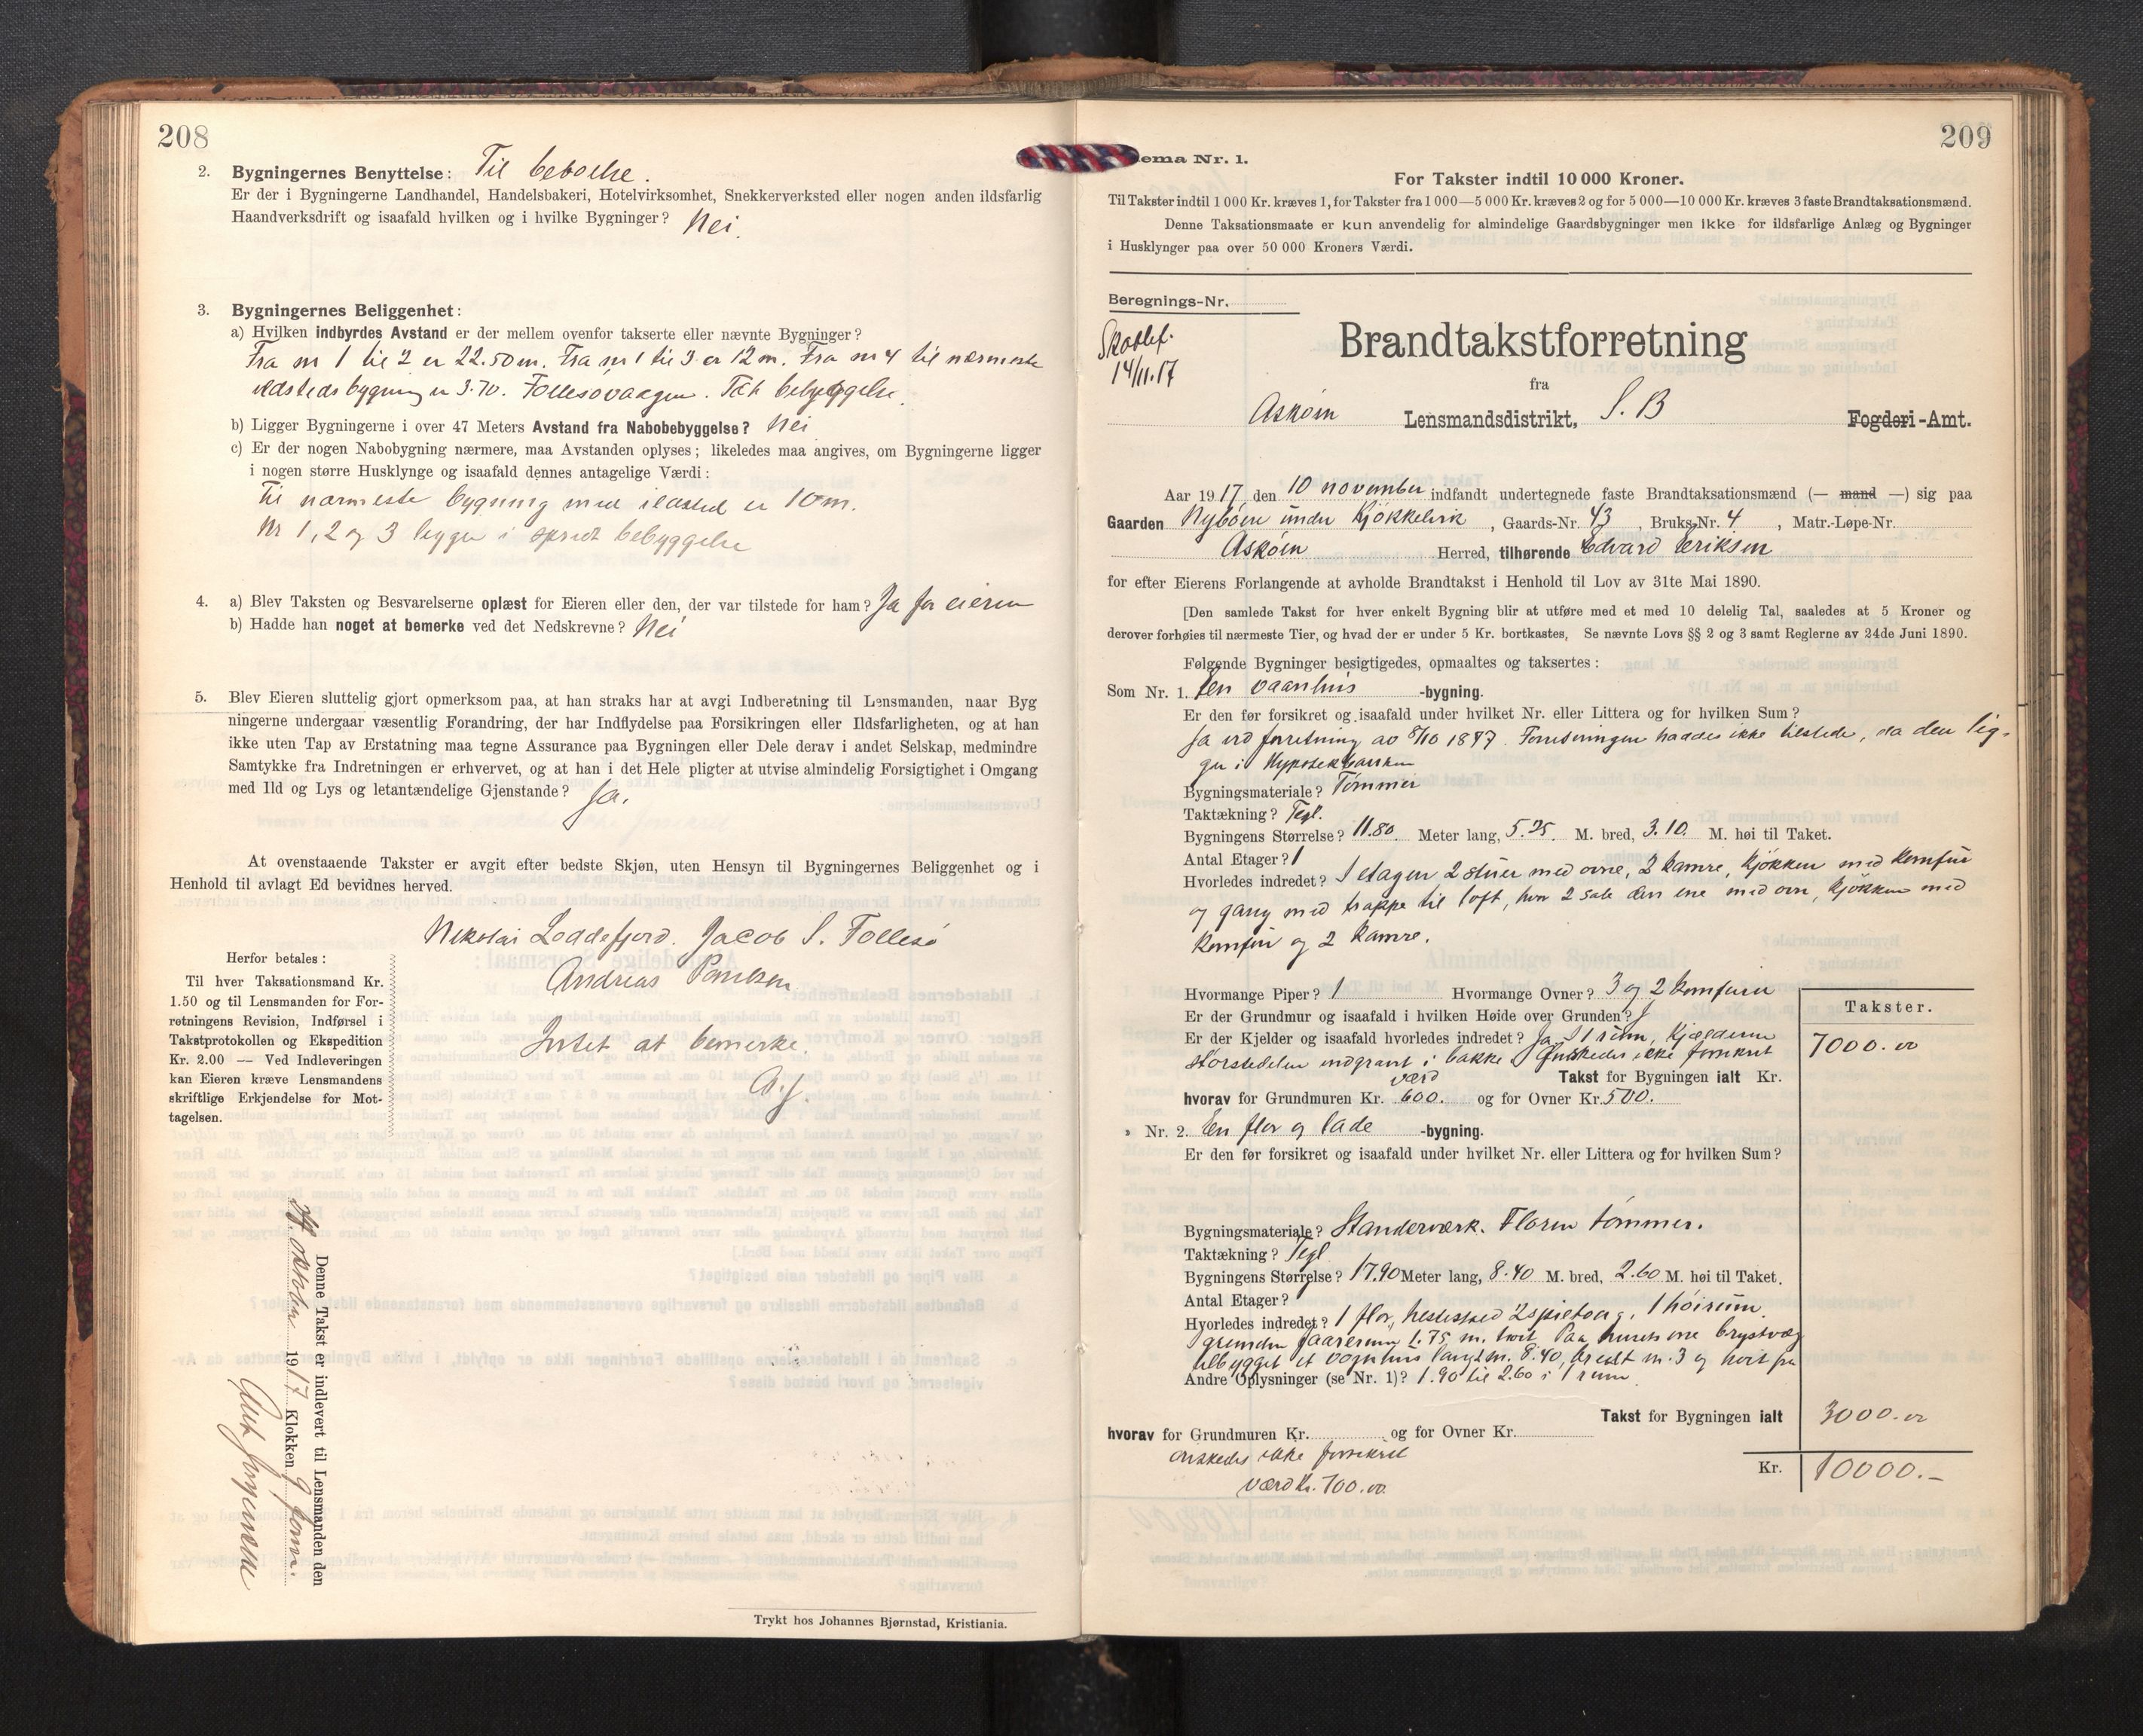 208
2. Bygningernes Benyttelse: Til beboelse.
Er der i Bygningerne Landhandel, Handelsbakeri, Hotelvirksomhet, Snekkerverksted eller nogen anden ildsfarlig
Haandverksdrift og isaafald hvilken og i hvilke Bygninger? Nei.
3. Bygningernes Beliggenhet:
a) Hvilken indbyrdes Avstand er der mellem ovenfor takserte eller nævnte Bygninger?
Fra nr 1 til 2 er 22.50 m. Fra nr 1 til 3 er 12 m. Fra nr 4 til nærmeste
ildstedsbygning er 3.70. Follesøvaagen. Tæt bebyggelse.
b) Ligger Bygningerne i over 47 Meters Avstand fra Nabobebyggelse? Nei
c) Er der nogen Nabobygning nærmere, maa Avstanden oplyses; likeledes maa angives, om Bygningerne ligger
i nogen større Husklynge og isaafald dennes antagelige Værdi:
Til nærmeste bygning med ildsted er 10 m.
Nr 1, 2 og 3 ligger i spredt bebyggelse
4. a) Blev Taksten og Besvarelserne oplæst for Eieren eller den, der var tilstede for ham? Ja for eieren
b) Hadde han noget at bemerke ved det Nedskrevne? Nei
5. Blev Eieren sluttelig gjort opmerksom paa, at han straks har at avgi Indberetning til Lensmanden, naar Byg
ningerne undergaar væsentlig Forandring, der har Indflydelse paa Forsikringen eller Ildsfarligheten, og at han
ikke uten Tap av Erstatning maa tegne Assurance paa Bygningen eller Dele derav i andet Selskap, medmindre
Samtykke fra Indretningen er erhvervet, og at han i det Hele pligter at utvise almindelig Forsigtighet i Omgang
med Ild og Lys og letantændelige Gjenstande? Ja.
At ovenstaaende Takster er avgit efter bedste Skjøn, uten Hensyn til Bygningernes Beliggenhet og i
Henhold til avlagt Ed bevidnes herved.
Nikolai Loddefjord. Jacob S. Follesø
Andreas Paulsen
Intet at bemerke.
A.J.
Herfor betales:
Til hver Taksationsmand Kr.
1.50 og til Lensmanden for For-
retningens Revision, Indførsel i
Takstprotokollen og Ekspedition
Kr. 2.00 — Ved Indleveringen
kan Eieren kræve Lensmandens
skriftlige Erkjendelse for Mot-
tagelsen.
Denne Takst er indlevert til Lensmanden den
oktober 1917 Klokken 9 form.
Jørgensen
Trykt hos Johannes Bjørnstad, Kristiania.
209
ema Nr. 1.
For Takster indtil 10 000 Kroner.
Til Takster indtil 1 000 Kr. kræves 1, for Takster fra 1 000—5 000 Kr. kræves 2 og for 5 000—10 000 Kr. kræves 3 faste Brandtaksationsmænd.
Denne Taksationsmaate er kun anvendelig for almindelige Gaardsbygninger men ikke for ildsfarlige Anlæg og Bygninger
i Husklynger paa over 50 000 Kroners Værdi.
Beregnings-Nr.
14/11.17
Brandtakstforretning
fra
Askøen Lensmandsdistrikt, S. B Fogderi-Amt.
Aar 1917 den 10 november indfandt undertegnede faste Brandtaksationsmænd (— mand —) sig paa
Gaarden Nybøen under Kjøkkelvik, Gaards-Nr. 43, Bruks-Nr. 4, Matr.-Løpe-Nr.
Askøen Herred, tilhørende Edvard Eriksen
for efter Eierens Forlangende at avholde Brandtakst i Henhold til Lov av 31te Mai 1890.
[Den samlede Takst for hver enkelt Bygning blir at utføre med et med 10 delelig Tal, saaledes at 5 Kroner og
derover forhøies til nærmeste Tier, og hvad der er under 5 Kr. bortkastes, Se nævnte Lovs §§ 2 og 3 samt Reglerne av 24de Juni 1890.
Følgende Bygninger besigtigedes, opmaaltes og taksertes:
Som Nr. 1. En vaanhus -bygning.
Er den før forsikret og isaafald under hvilket Nr. eller Littera og for hvilken Sum?
Ja ved forretning av 8/10 1897. Forretningen haddes ikke tilstede, da den lig-
ger i Hypotekbanken
Bygningsmateriale? Tømmer
Taktækning? Tegl.
Bygningens Størrelse? 11.80 Meter lang, 5.25 M. bred, 3.10 M. høi til Taket.
Antal Etager? 1
Hvorledes indredet? I etagen 2 stuer med ovne, 2 kamre, kjøkken med komfur
og gang med trappe til loft, hvor 2 sale den ene med ovn, kjøkken med
komfur og 2 kamre.
Hvormange Piper? 1 Hvormange Ovner? 3 og 2 komfurer
Er der Grundmur og isaafald i hvilken Høide over Grunden?
Er der Kjelder og isaafald hvorledes indredet? Ja I 1 rum, Kjælderen
størstedelen indgravt i bakke Ønskedes ikke forsikret
Takst for Bygningen ialt Kr.
værd
hvorav for Grundmuren Kr. 600. og for Ovner Kr. 500.
Takster.
7000.00
» Nr. 2. En flor og lade -bygning.
Er den før forsikret og isaafald under hvilket Nr. eller Littera og for hvilken Sum?
Bygningsmateriale? Standerværk. Floren tømmer.
Taktækning? Tegl
Bygningens Størrelse? 17.90 Meter lang, 8.40 M. bred, 2.60 M. høi til Taket.
Antal Etager?
Hvorledes indredet? 1 flor, hestested 1 høirum.
I grunden 1.75 m. høit Paa husets ene brystvæg
tilbygget et vognhus langt m. 8.40, bredt m. 3 og høit fra
Andre Oplysninger (se Nr. 1)? 1.90 til 2.60 i 1 rum
Takst for Bygningen ialt 3000.00
hvorav for Grundmuren Kr. og for Ovner Kr.
ønskedes ikke forsikret
værd Kr. 700.00
Kr. 10000.-